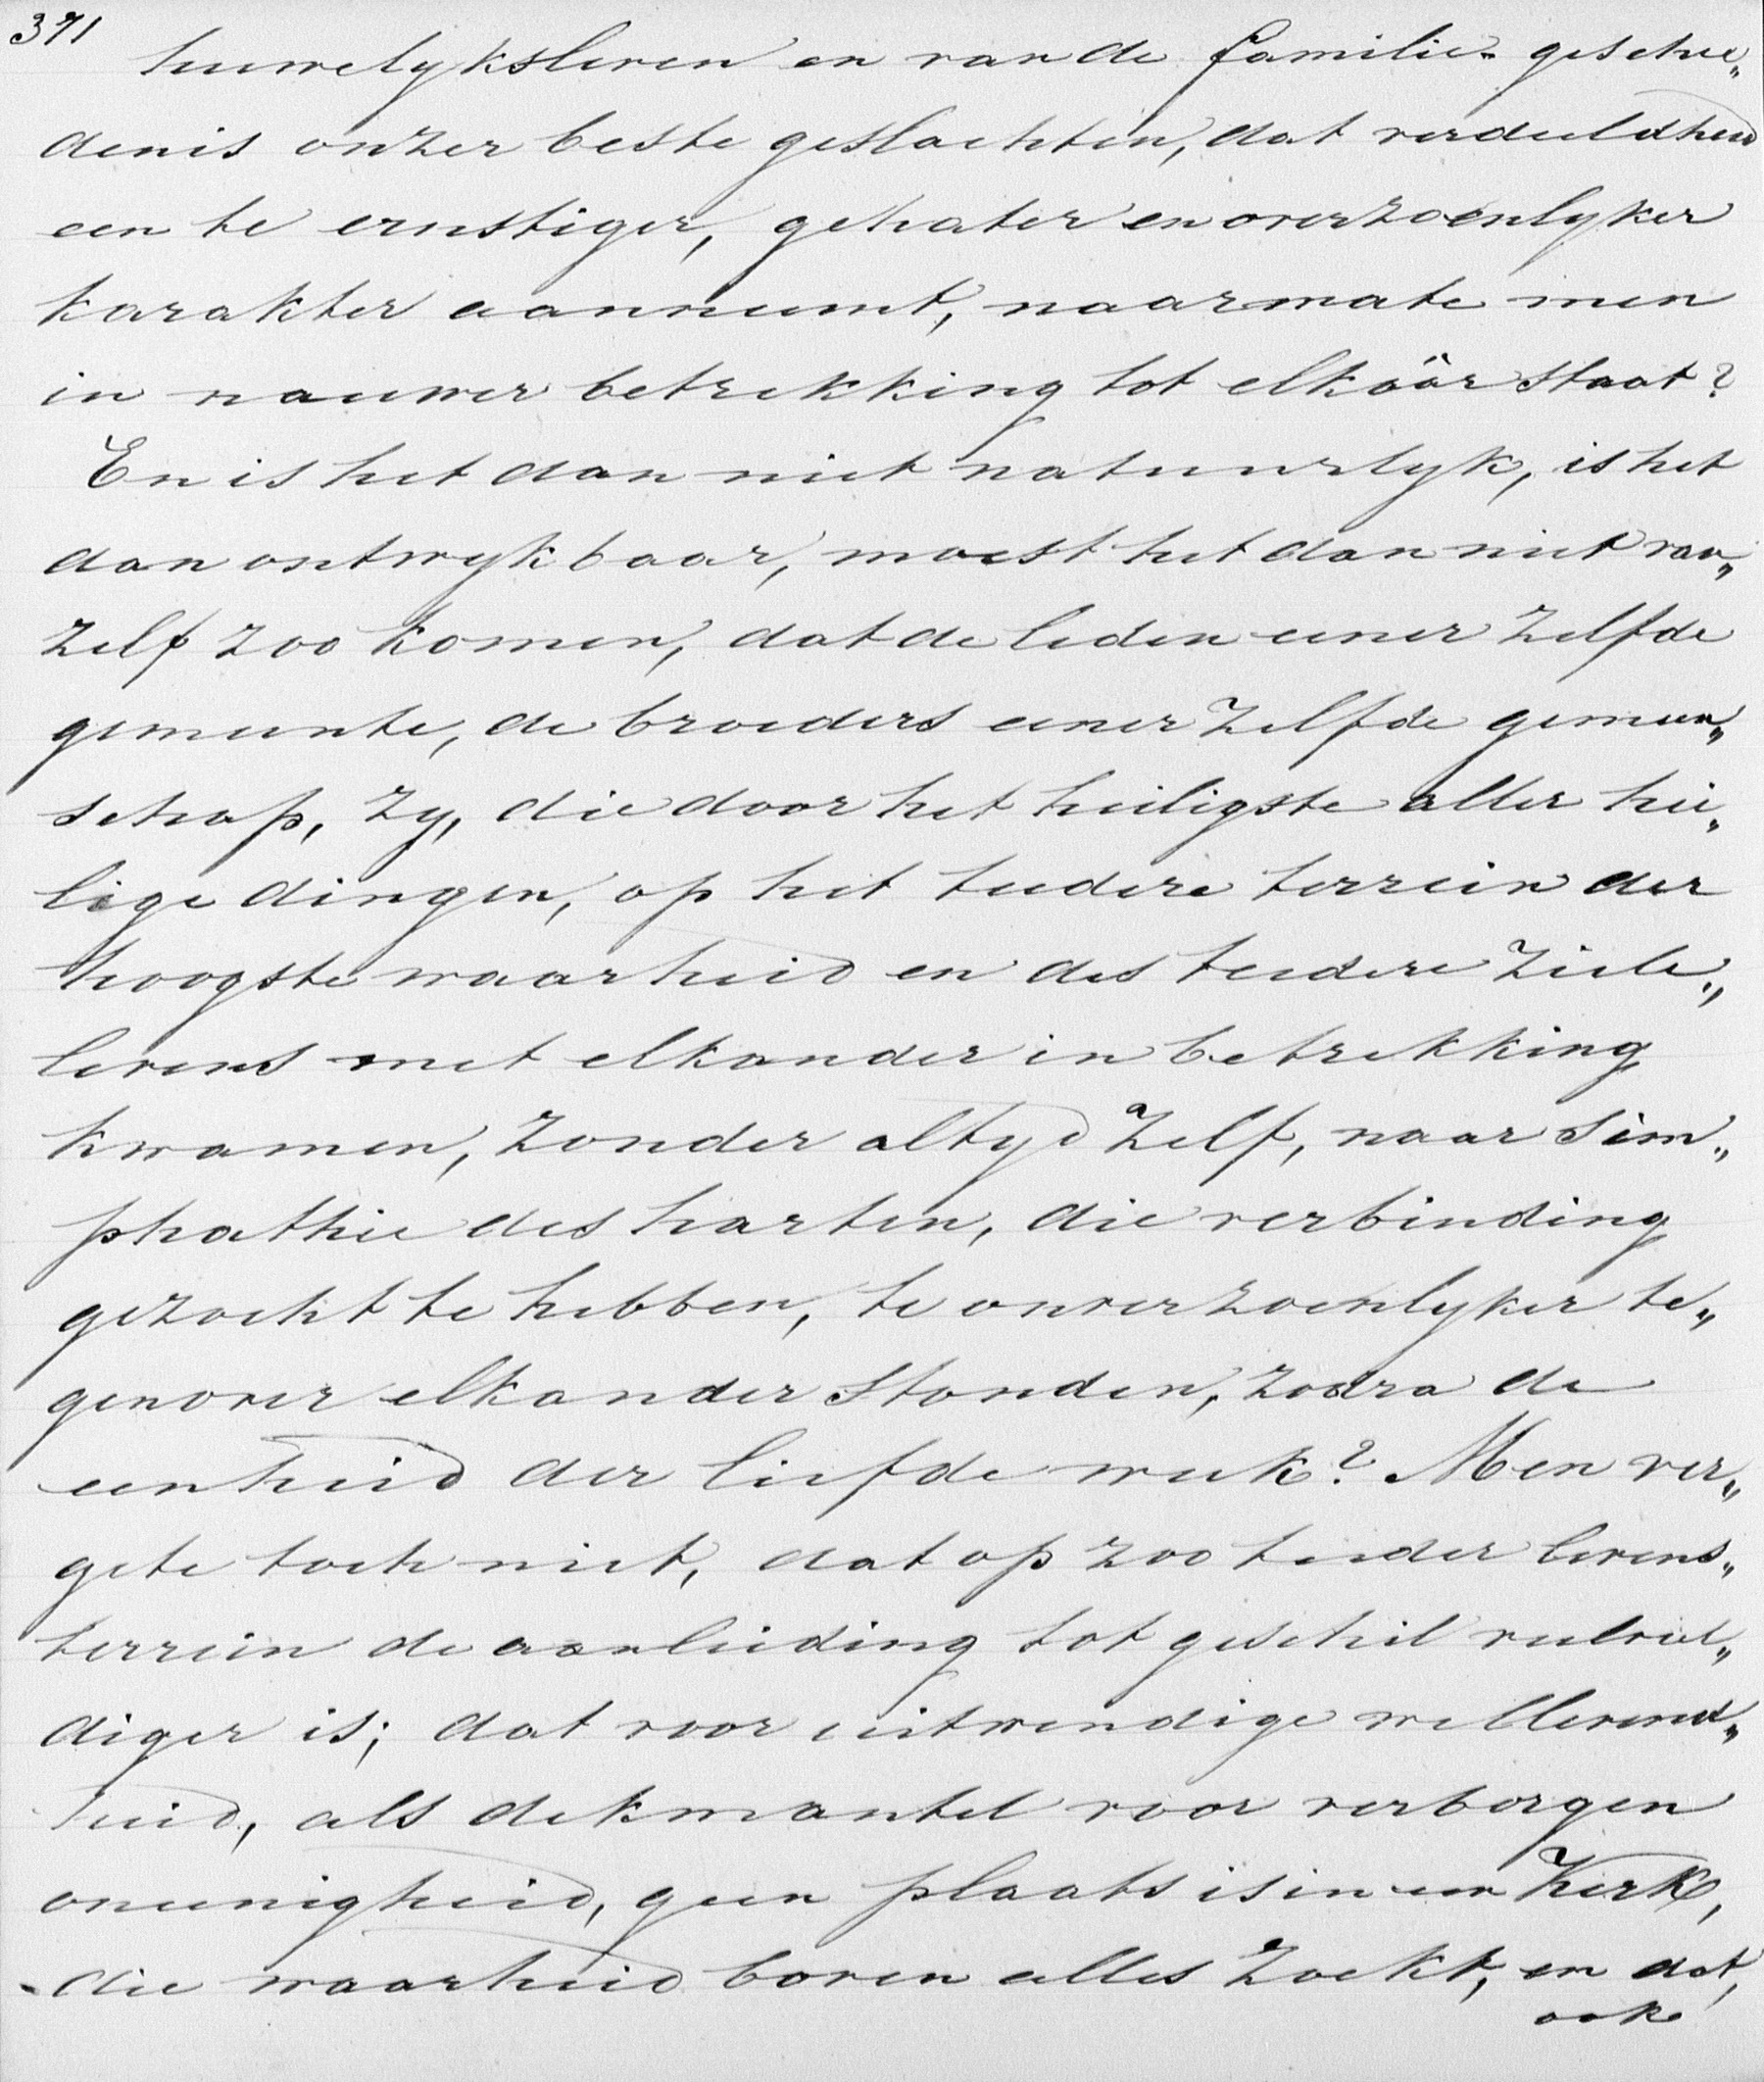 371
huwelyksleven en van de familie-geschie„
denis onzer beste geslachten, dat verdeeldheid
een te ernstiger, gehater en onverzoenlyker
karakter aanneemt, naarmate men
in nauwer betrekking tot elkaâr staat?
En is het dan niet natuurlyk, is het
dan ontwykbaar, moest het dan niet van„
zelf zoo komen, dat de leden eener zelfde
gemeente, de broeders eener zelfde gemeen„
schap, zy, die door het heiligste aller hei„
lige dingen, op het teedere terrein der
hoogste waarheid en des teedere ziele„
levens met elkander in betrekking
kwamen, zonder altyd zelf, naar sim„
phathie des harten, die verbinding
gezocht te hebben, te onverzoenlyker te„
genover elkander stonden, zodra de
eenheid der liefde week? Men ver„
gete toch niet, dat op zoo teeder levens„
terrein de aanleiding tot geschil veelvul„
diger is; dat voor uitwendige wellevend„
heid, als dekmantel voor verborgen
oneenigheid, geen plaats is in een Kerk,
die waarheid boven alles zoekt, en dat,
ook